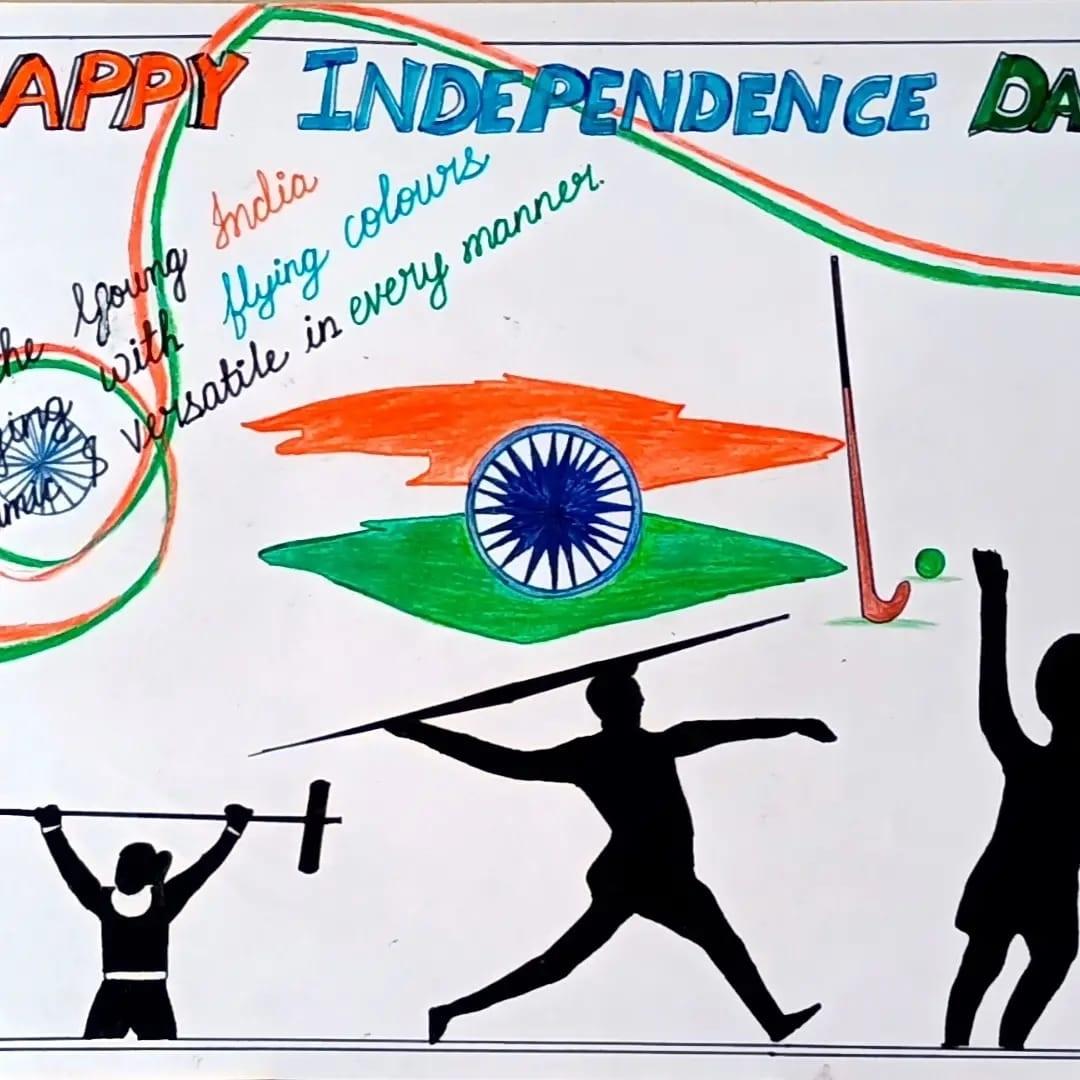 APPY INDEPENDENCE DA
the Young India
with flying colours
& versatile in every manner.